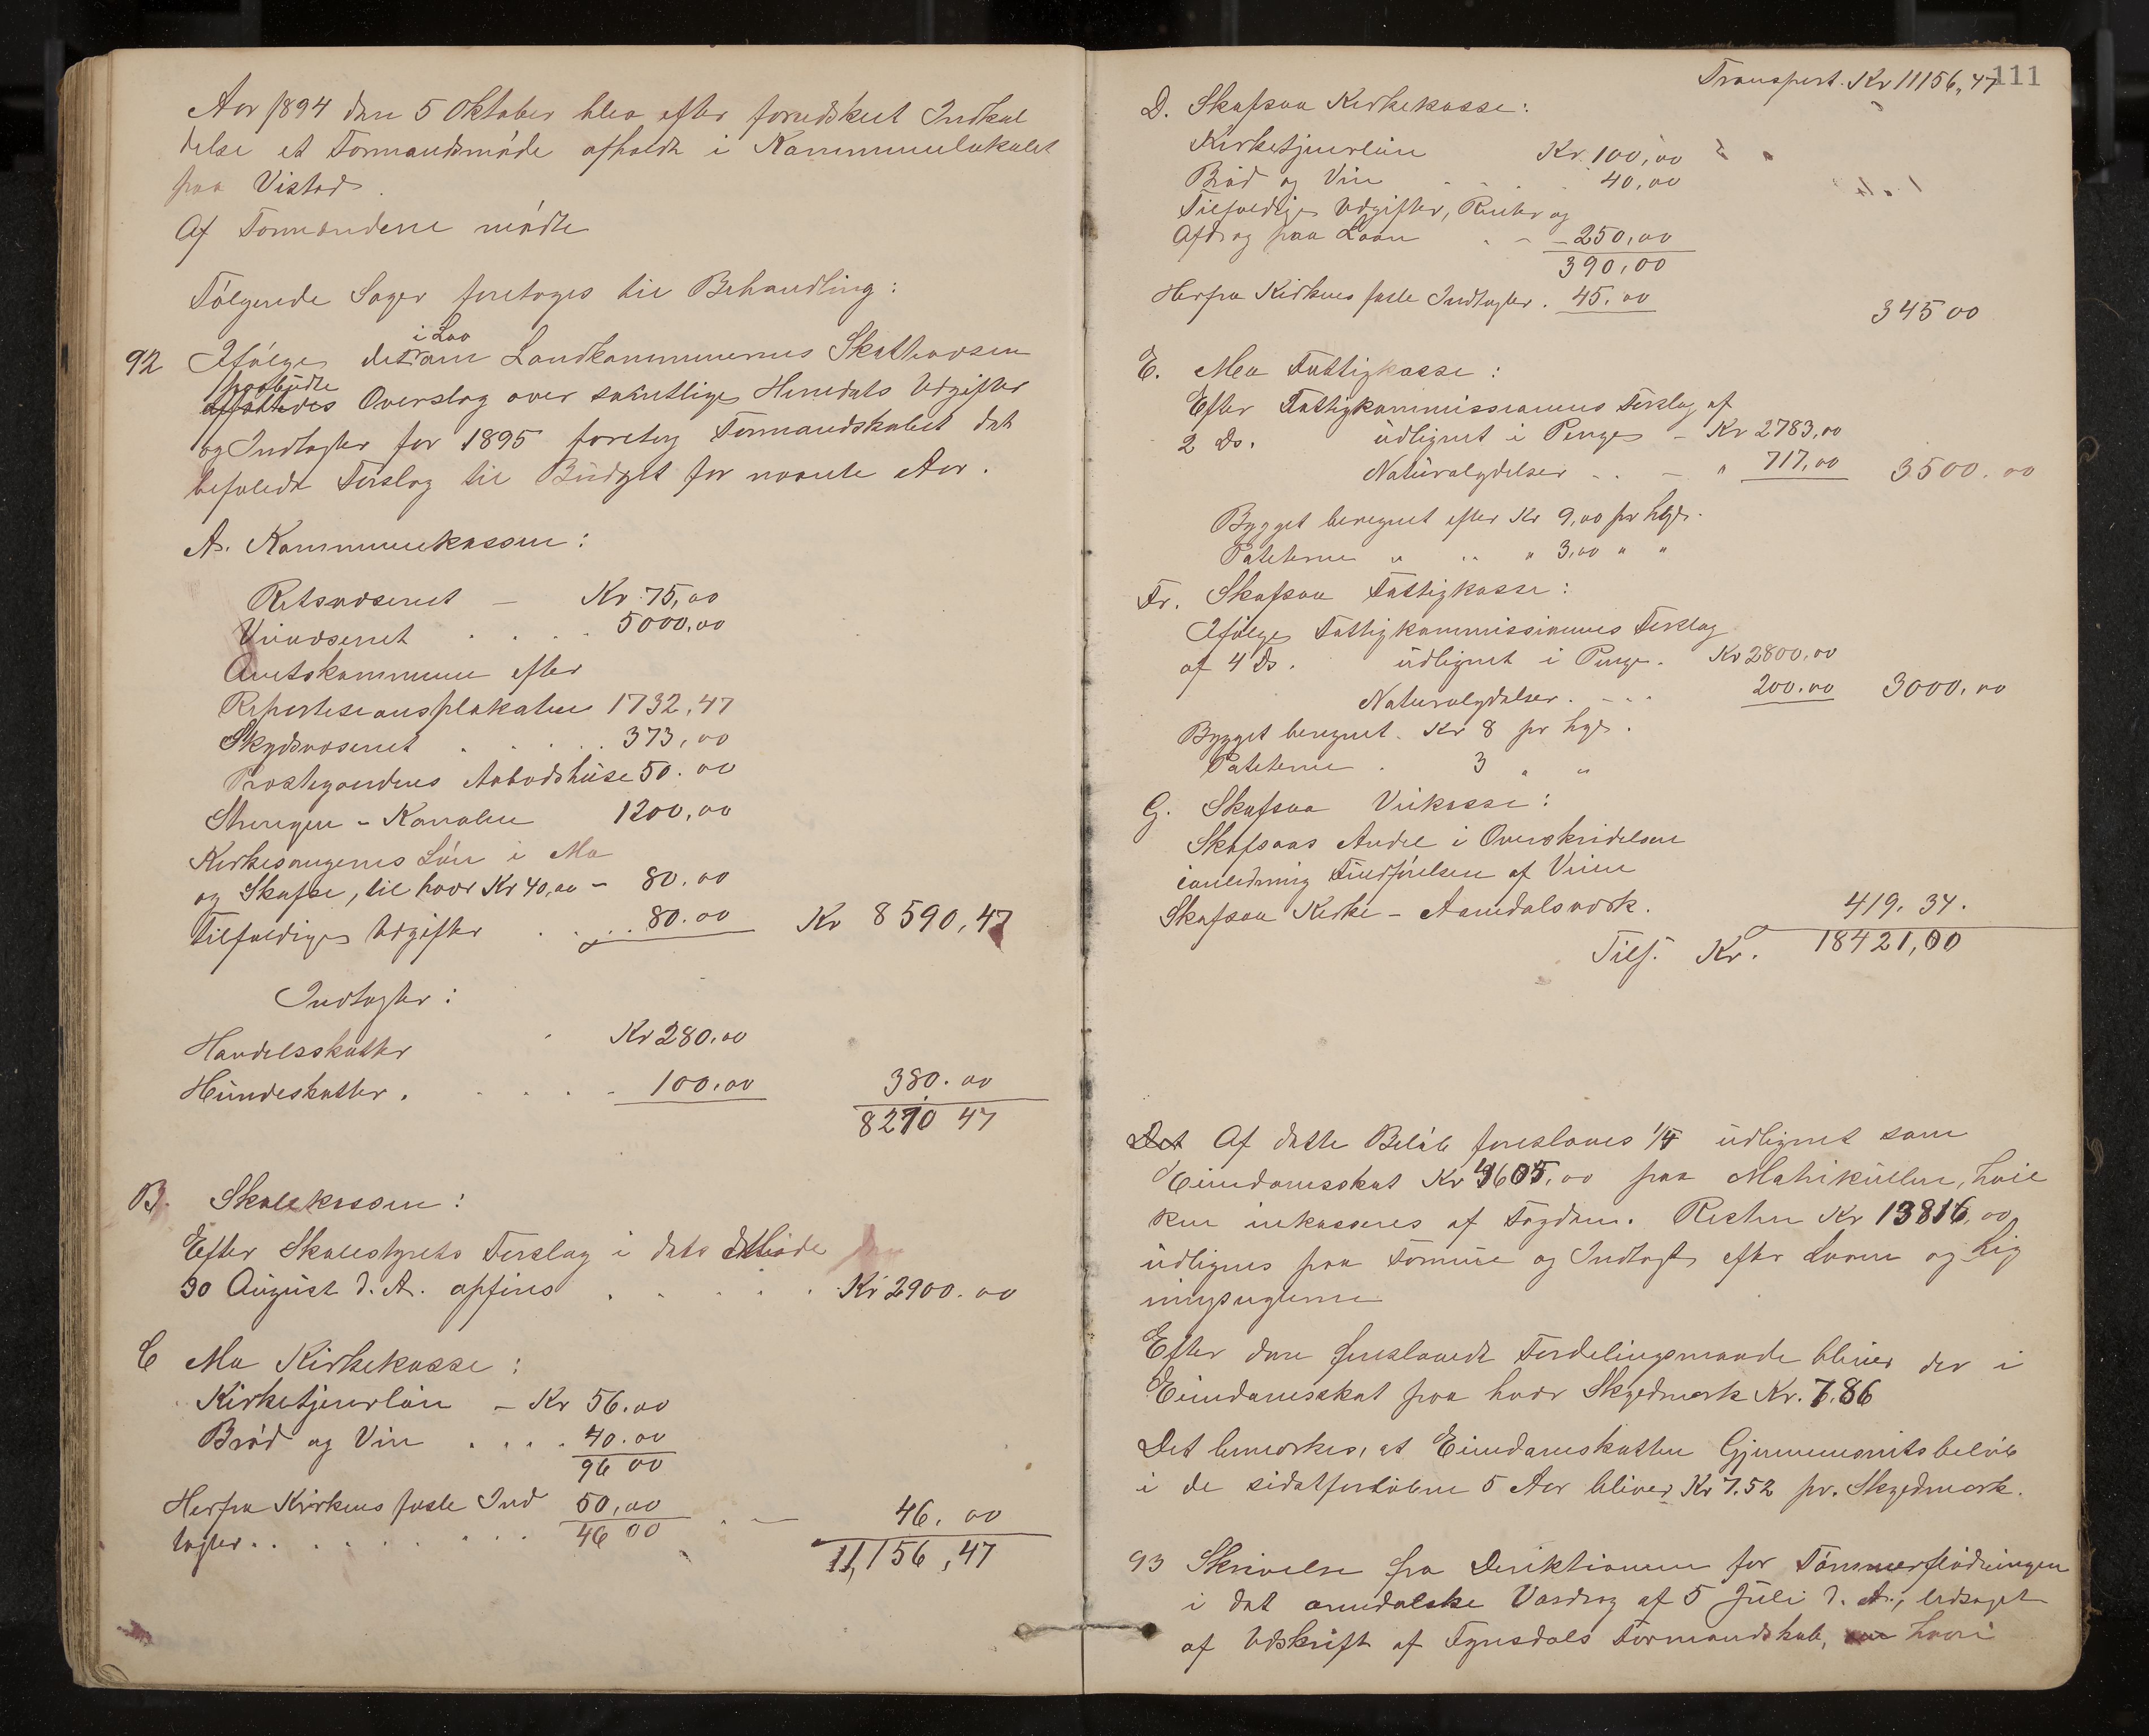 Aar 1894 den 5 Oktober blev efter forudskeet Indkal
delse et Formandsmøde afholdt i Kommunelokalet
paa Vistad.
Af Formændene mødte
Følgende Sager foretoges til Behandling:
i Lov
92 Ifølge det om Landkommunernes Skattevæsen
paabudte
affattedes Overslag over samtlige Herredets Udgifter
og Indtægter for 1895 foretog Formandskabet det
befalede Forslag til Budget for nævnte Aar.
A. Kommunekassen:
Retsvæsenet — Kr 75,00
Veivæsenet . . . . 5000,00
Amtskommunen efter
Repartisionsplakaten 1732,47
Skydsvæsenet . . . . 373,00
Prestegaardens Aabodshuse 50.00
Strengen - Kanalen 1200,00
Kirkesangernes Løn i Mo
og Skafse, til hver Kr 40,00 - 80.00
Tilfældige Udgifter . . . . 80.00 Kr 8590,47
Indtægter:
Handelsskatter Kr 280.00
Hundeskatter . . . . . 100.00 380.00
8210 47
B. Skolekassen:
Efter Skolestyrets Forslag i dets Møde
30 August d. A. opføres . . . . . Kr 2900.00
C Mo Kirkekasse:
Kirketjenerløn - Kr 56.00
Brød og Vin . . . . 40.00
96 00
Herfra Kirkens faste Ind 50,00
tægter . . . . . . . 46 00 . — 46. 00
11,156,47
111
Transport. Kr 11156,47
D. Skafsaa Kirkekasse:
Kirketjenerløn Kr. 100,00
Brød og Vin . . . . 40,00
Tilfældige Udgifter, Renter og
Afdrag paa Laan . - - 250,00
390,00
Herfra Kirkens faste Indtægter . 45,00 345 00
E. Mo Fattigkasse:
Efter Fattigkommissionens Forslag af
2 Ds. udlignet i Penge - Kr 2783,00
Naturalydelser - . - " 717,00 3500.00
Bygget beregnet efter Kr 9,00 pr hlgr.
Poteterne " " " 3,00 " "
Fr. Skafsaa Fattigkasse:
Ifølge Fattigkommissionens Forslag
af 4 Ds. udlignet i Penge. Kr 2800,00
Naturalydelser . - . . 200.00 3000.00
Bygget beregnet. Kr 8 pr hgr.
Poteterne . 3 " "
G. Skafsaa Veikasse:
Skafsaas Andel i Overskridelsen
ianledning Fuldførelsen af Veien
Skafsaa Kirke - Aamdalsverk. 419. 34.
Tils. Kr. 18421,00
Det Af dette Beløb foreslaaes 1/4 udlignet som
Eiendomsskat Kr 4605,00 paa Matrikulen, hvil
ken inkasseres af Fogden. Resten Kr 13816,00
udlignes paa Formue og Indtægt efter Loven og Lig
ningsreglerne
Efter den foreslaaede Fordelingsmaade bliver der i
Eiendomsskat paa hver Skyldmark Kr. 7.86
Det bemærkes, at Eiendomsskatten Gjennemsnitsbeløb
i de sidstforløbne 5 Aar bliver Kr 7.52 pr. Skyldmark.
93 Skrivelse fra Direktionen for Tømmerflødningen
i det arendalske Vasdrag af 5 Juli d. A., ledsaget
af Udskrift af Fyresdals Formandskab, hvori